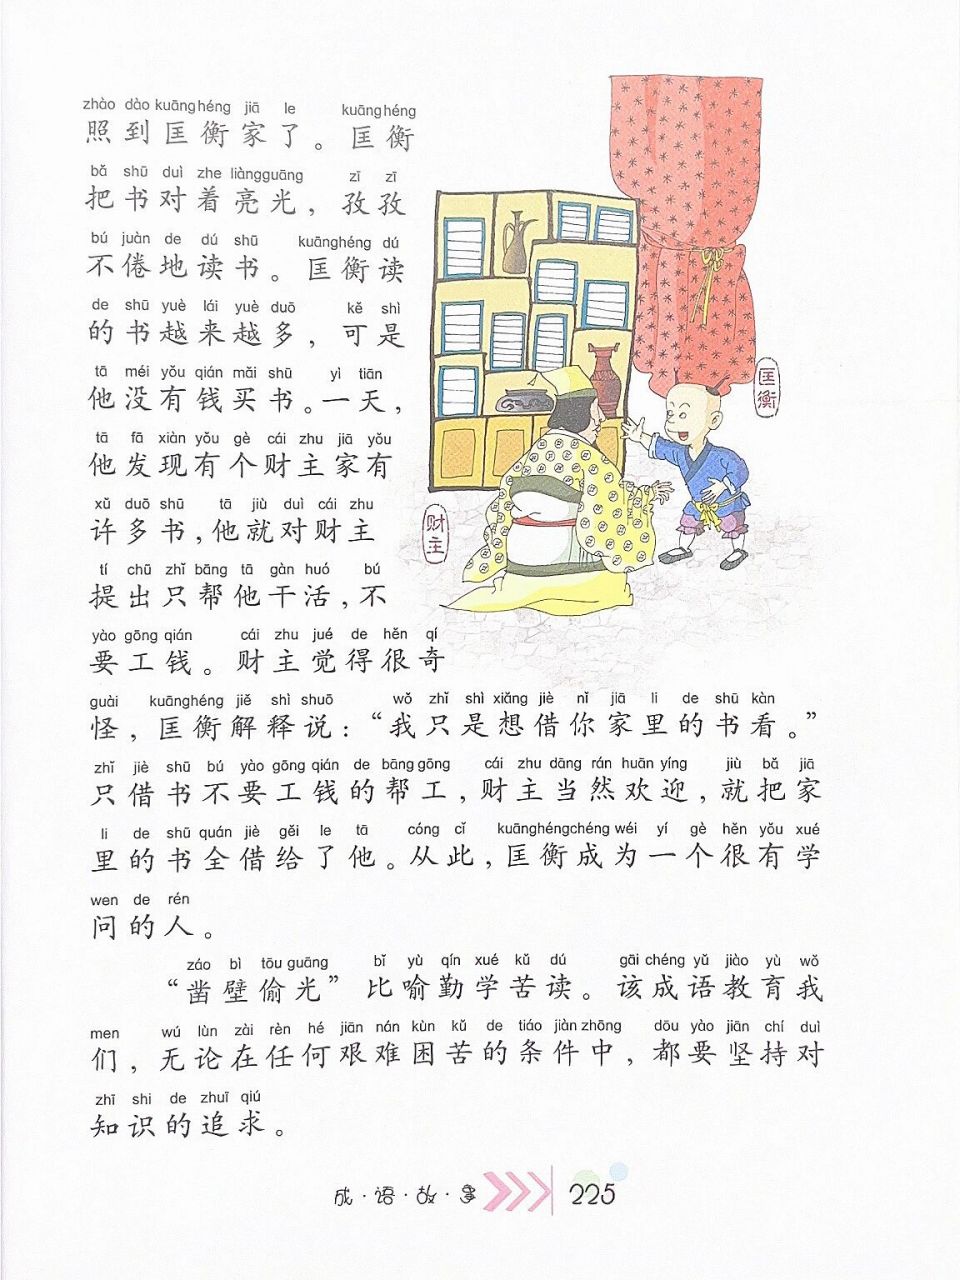 zhào dào kuāng héng jiā le kuāng héng
照到匡衡家了。匡衡
bǎ shū duì zhe liàng guāng zī zī
把书对着亮光，孜孜
bú juàn de dú shū kuāng héng dú
不倦地读书。匡衡读
de shū yuè lái yuè duō kě shì
的书越来越多，可是
tā méi yǒu qián mǎi shū yì tiān
他没有钱买书。一天，
tā fā xiàn yǒu gè cái zhu jiā yǒu
他发现有个财主家有
xǔ duō shū tā jiù duì cái zhu
许多书，他就对财主
tí chū zhǐ bāng tā gàn huó bú
提出只帮他干活，不
yào gōng qián cái zhu jué de hěn qí
要工钱。财主觉得很奇
guài kuāng héng jiě shì shuō wǒ zhǐ shì xiǎng jiè nǐ jiā li de shū kàn
怪，匡衡解释说：“我只是想借你家里的书看。”
zhǐ jiè shū bú yào gōng qián de bāng gōng cái zhu dāng rán huān yíng jiù bǎ jiā
只借书不要工钱的帮工，财主当然欢迎，就把家
li de shū quán jiè gěi le tā cóng cǐ kuāng héng chéng wéi yí gè hěn yǒu xué
里的书全借给了他。从此，匡衡成为一个很有学
wen de rén
问的人。
záo bì tōu guāng bǐ yù qín xué kǔ dú gāi chéng yǔ jiào yù wǒ
“凿壁偷光”比喻勤学苦读。该成语教育我
men wú lùn zài rèn hé jiān nán kùn kǔ de tiáo jiàn zhōng dōu yào jiān chí duì
们，无论在任何艰难困苦的条件中，都要坚持对
zhī shi de zhuī qiú
知识的追求。
匡衡
财主
成·语·故·事 225